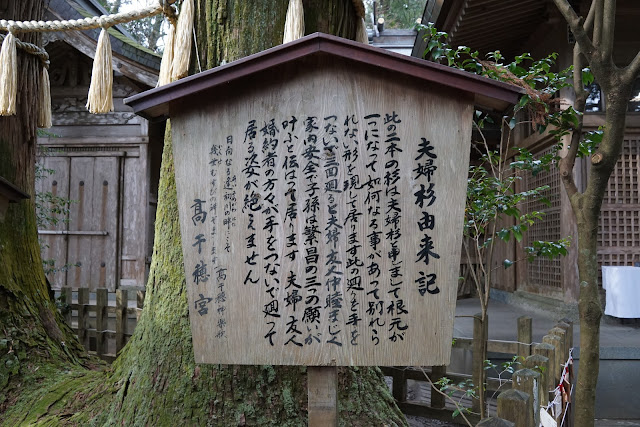 夫婦杉由来記
此の二本の杉は夫婦杉と申しまして根元が
一つになって如何なる事があって別れら
れない形を現して居ります此の廻りを手を
つないで三回廻ると夫婦友人仲睦まじく
家内安全で子孫は繁昌の三つの願いが
叶うと伝はって居ります 夫婦 友人
婚約者の方々が手をつないで廻って
居る姿が絶えません
高千穂宮